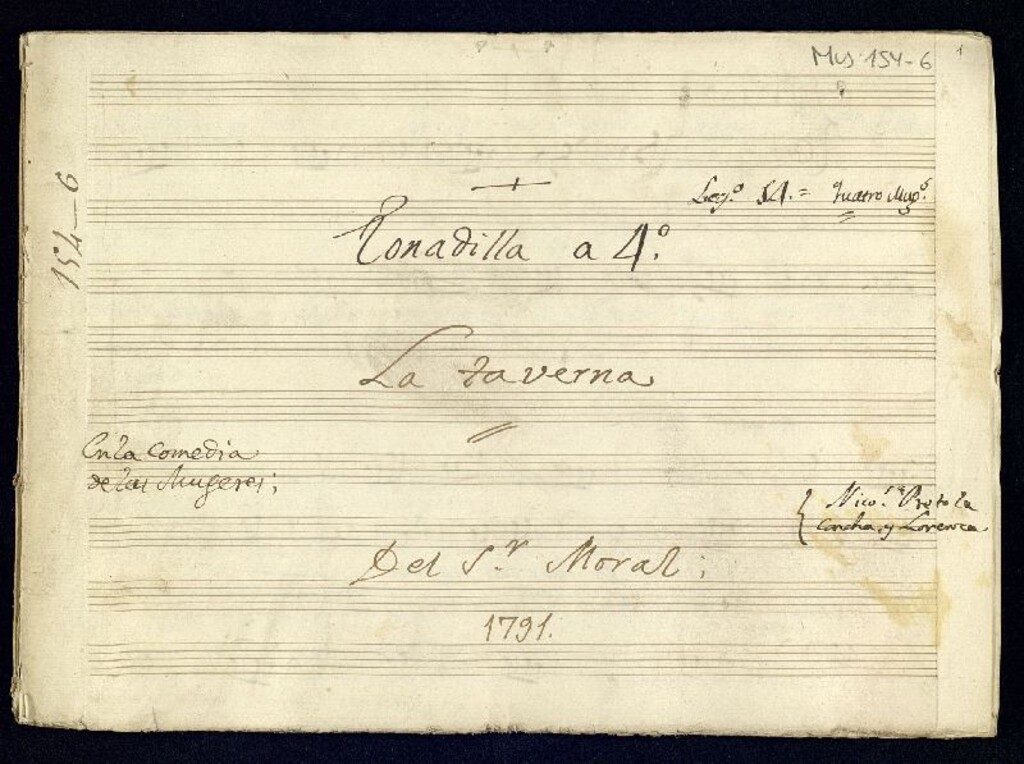 Mus 154-6
1
154-6
Leg.º 14. = quatro Mug.s
Tonadilla a 4.º
La taverna
En la Comedia
de las Mugeres;
Nico.sa Pretola
Concha, y Lorenza
Del S.r Moral;
1791.